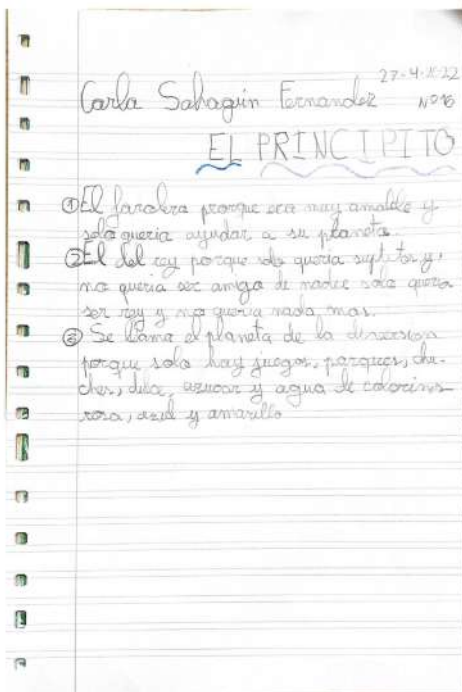 27-4-2022
Carla Sahagún Fernandez Nº16
EL PRINCIPITO
① El farolero porque era muy amable y
solo quería ayudar a su planeta.
② El del rey porque solo quería y,
no quería ser amigo de nadie solo quería
ser rey y no quería nada mas.
③ Se llama el planeta de la diversion
porque solo hay juegos, parques, chu-
ches, dulce, azucar y agua de colorines
rosa, azul y amarillo